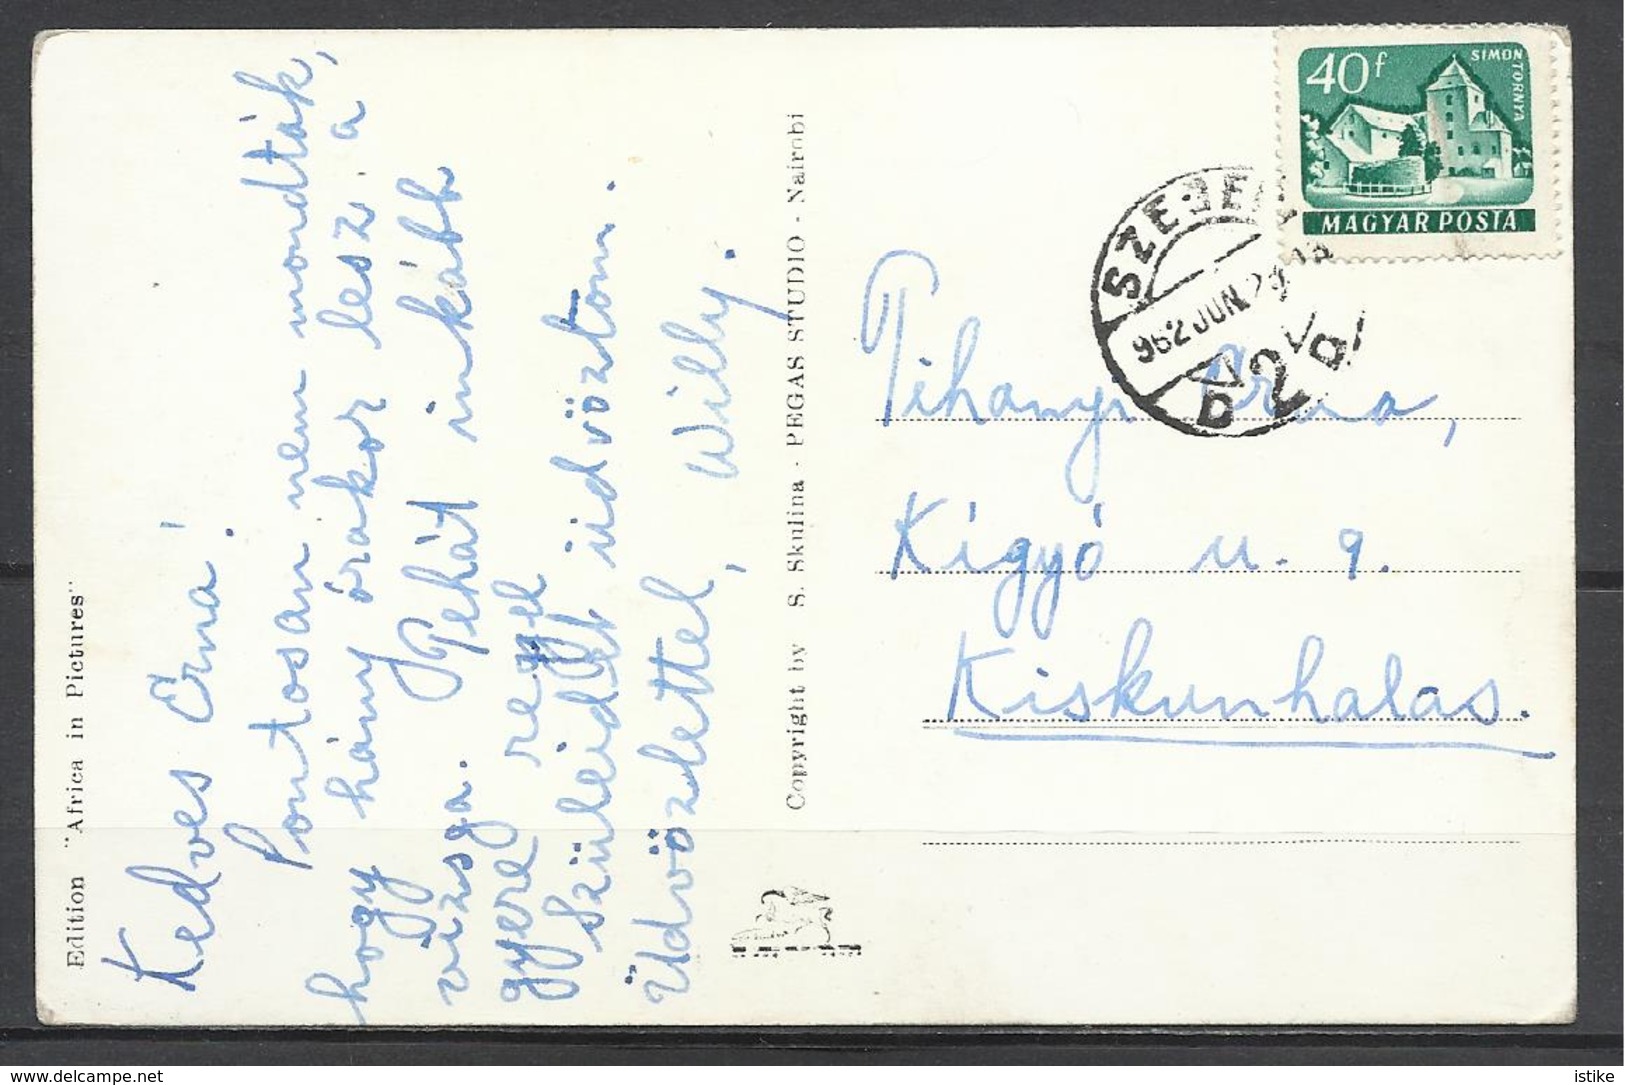 Edition "Africa in Pictures"
Kedves Erna!
Pontosan nem mondták,
hogy hány órakor lesz a
vizsga. Tehát inkább
gyere reggel
Szüleidet üdvözlöm.
Üdvözlettel, Willy.
Copyright by S. Skulina - PEGAS STUDIO - Nairobi
40f
SIMONTORNYA
MAGYAR POSTA
SZEGED
962 JUN
2
Tihanyi Erna,
Kígyó u. 9.
Kiskunhalas.
delcampe.net
istike